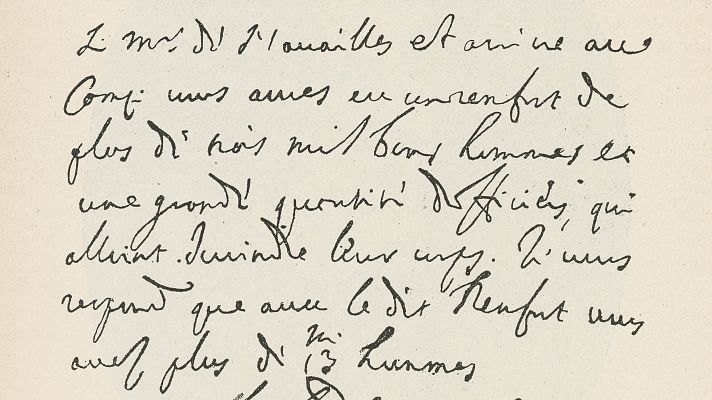 L. mrs. de et arrive au
Camp. vous avies eu un renfort de
plus de trois mil bons hommes et
une grande quantité d'officiers, qui
alloint Joindre leur corps. Je vous
respond que avec le dit Renfort vous
avés plus de 13 m hommes